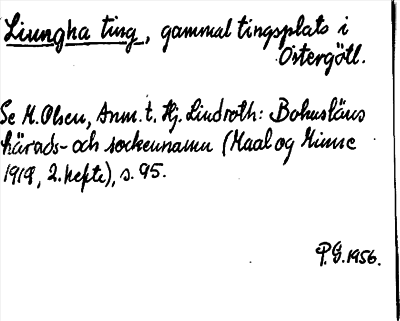 Liungha ting, gammal tingsplats i
Östergötl.
Se M. Olsen, Anm. t. Hj. Lindroth: Bohusläns
härads- och sockennamn (Maal og Minne
1918, 2. hefte), s. 95.
P.G. 1956.